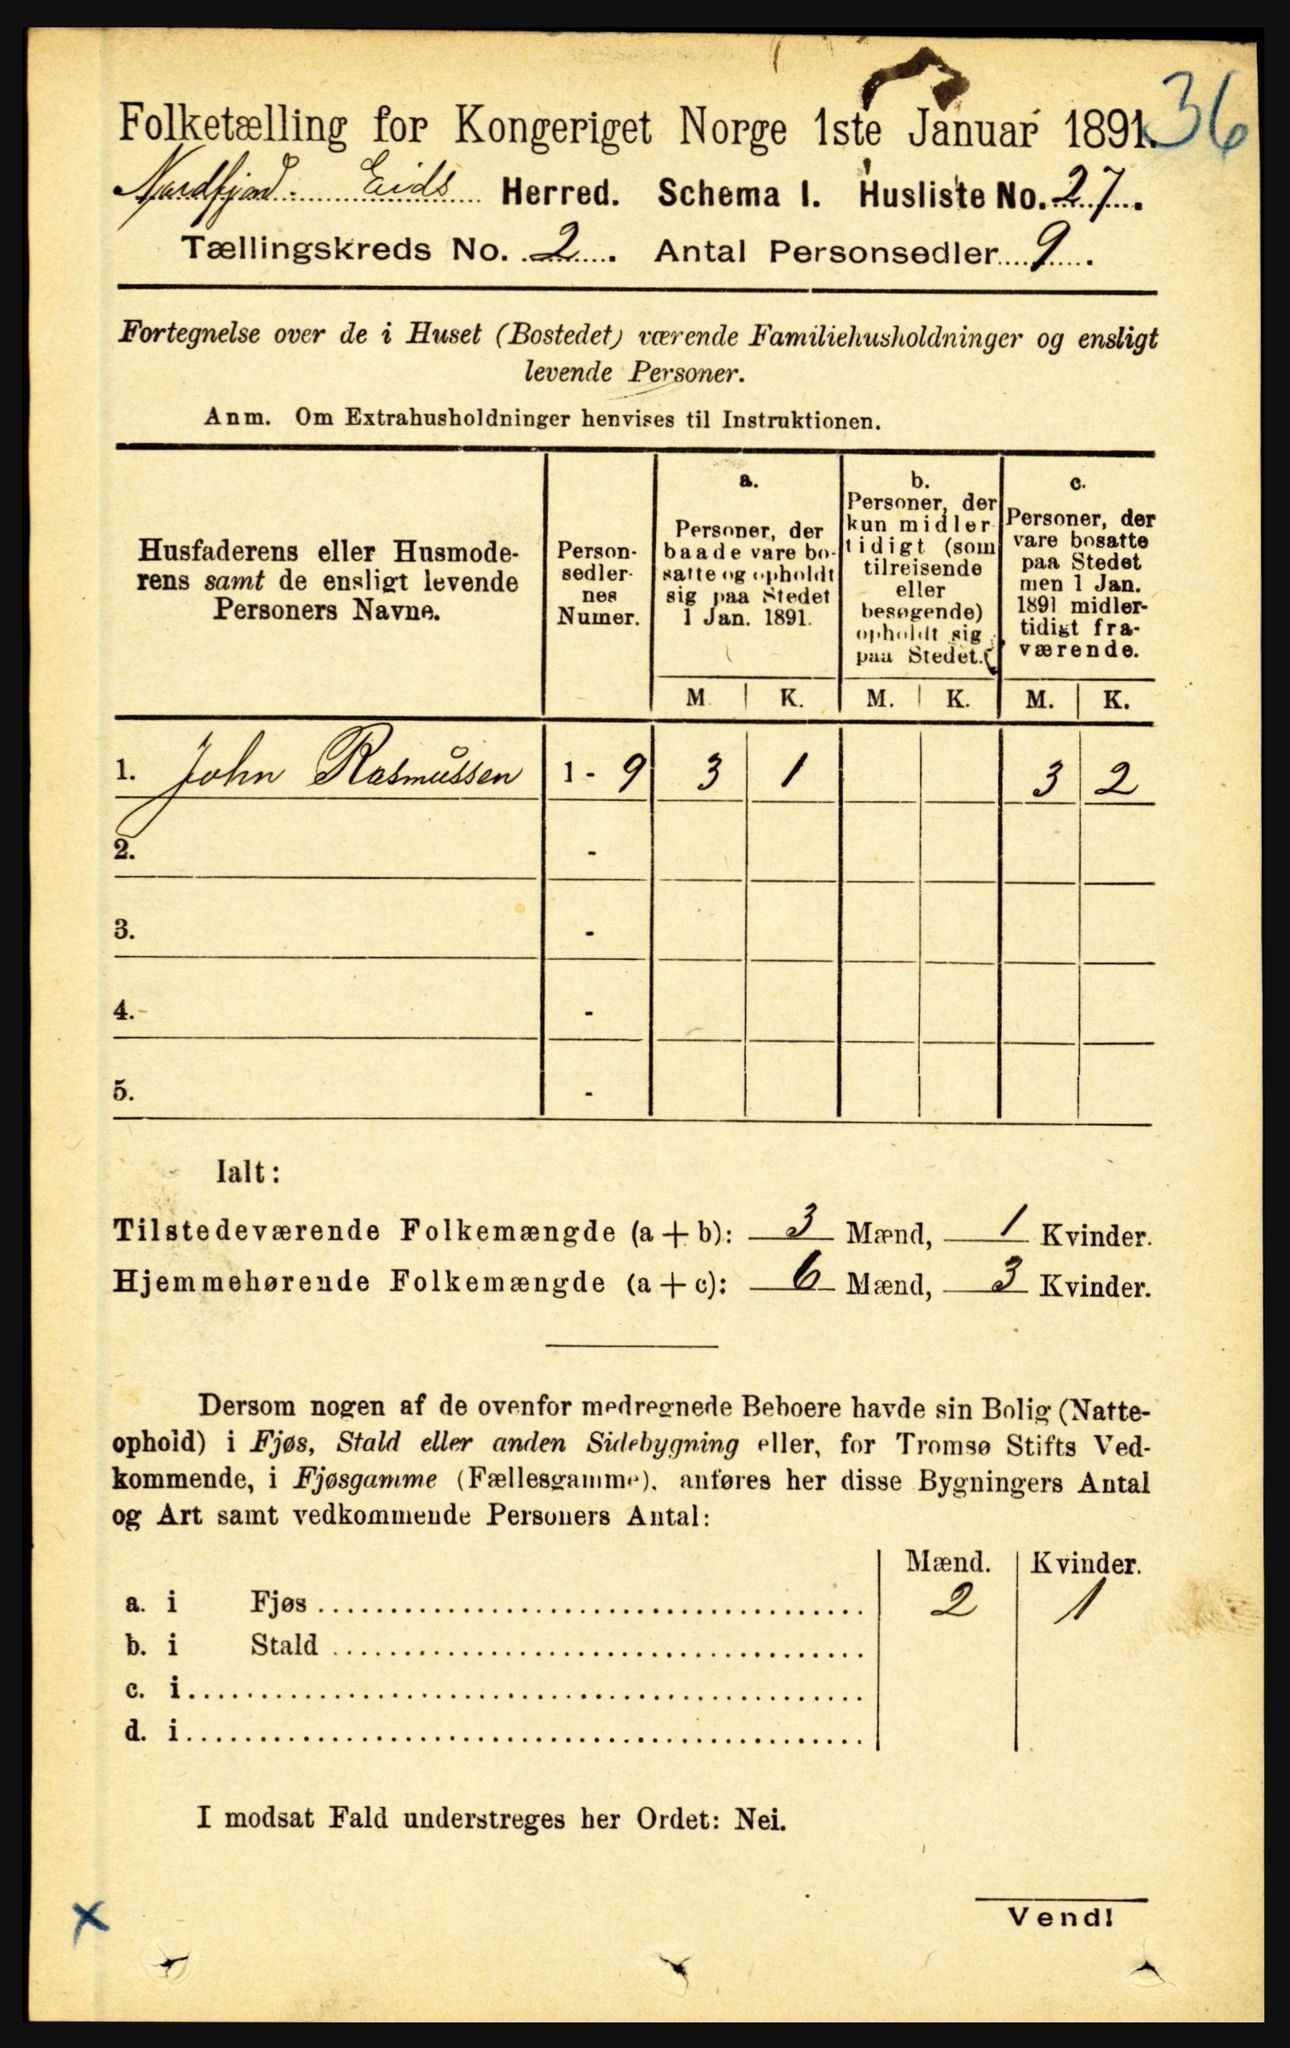 36
Folketælling for Kongeriget Norge 1ste Januar 1891.
Nordfjord. Eids Herred. Schema I. Husliste No. 27.
Tællingskreds No. 2. Antal Personsedler 9.
Fortegnelse over de i Huset (Bostedet) værende Familiehusholdninger og ensligt
levende Personer.
Anm. Om Extrahusholdninger henvises til Instruktionen.
Husfaderens eller Husmode-
rens samt de ensligt levende
Personers Navne.
Person-
sedler-
nes
Numer.
a.
Personer, der
baade vare bo-
satte og opholdt
sig paa Stedet
1 Jan. 1891.
b.
Personer, der
kun midler
tidigt (som
tilreisende
eller
besøgende)
opholdt sig
paa Stedet.
c.
Personer, der
vare bosatte
paa Stedet
men 1 Jan.
1891 midler-
tidigt fra-
værende.
M. K. M. K. M. K.
1. John Rasmussen 1 - 9 3 1 3 2
2. -
3. -
4. -
5. -
Ialt:
Tilstedeværende Folkemængde (a + b): 3 Mænd, 1 Kvinder.
Hjemmehørende Folkemængde (a + c): 6 Mænd, 3 Kvinder.
Dersom nogen af de ovenfor medregnede Beboere havde sin Bolig (Natte-
ophold) i Fjøs, Stald eller anden Sidebygning eller, for Tromsø Stifts Ved-
kommende, i Fjøsgamme (Fællesgamme), anføres her disse Bygningers Antal
og Art samt vedkommende Personers Antal:
Mænd. Kvinder.
a. i Fjøs 2 1
b. i Stald
c. i
d. i
I modsat Fald understreges her Ordet: Nei.
x
Vend!